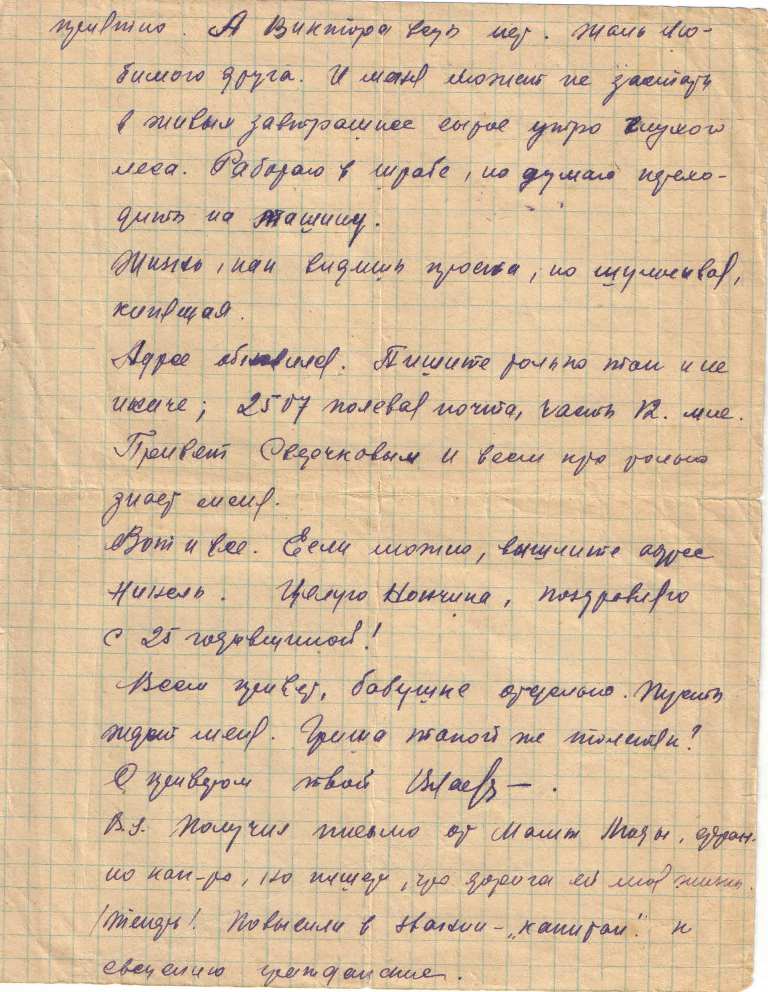 приятно. А Виктора ведь нет. Жаль лю-
бимого друга. И меня может не застать
в живых завтрашнее сырое утро глухого
леса. Работаю в штабе, но думаю перехо-
дить на машину.
Жизнь, как видишь проста, но шумливая,
кипящая.
Адрес обновился. Пишите только так и не
иначе; 2507 полевая почта, часть 12. мне.
Привет Сверчковым и всем кто только
знает меня.
Вот и все. Если можно, вышлите адрес
Нинель. Целую Кончика, поздравляю
с 25 годовщиной!
Всем привет, бабушке отдельно. Пусть
ждет меня. Гриша такой же толстяк?
С приветом твой
P.S. Получил письмо от Магды, стран-
но как-то, но пишет, что дорога ей моя жизнь.
Повысили в звании – „капитан". к
сведению гражданские.